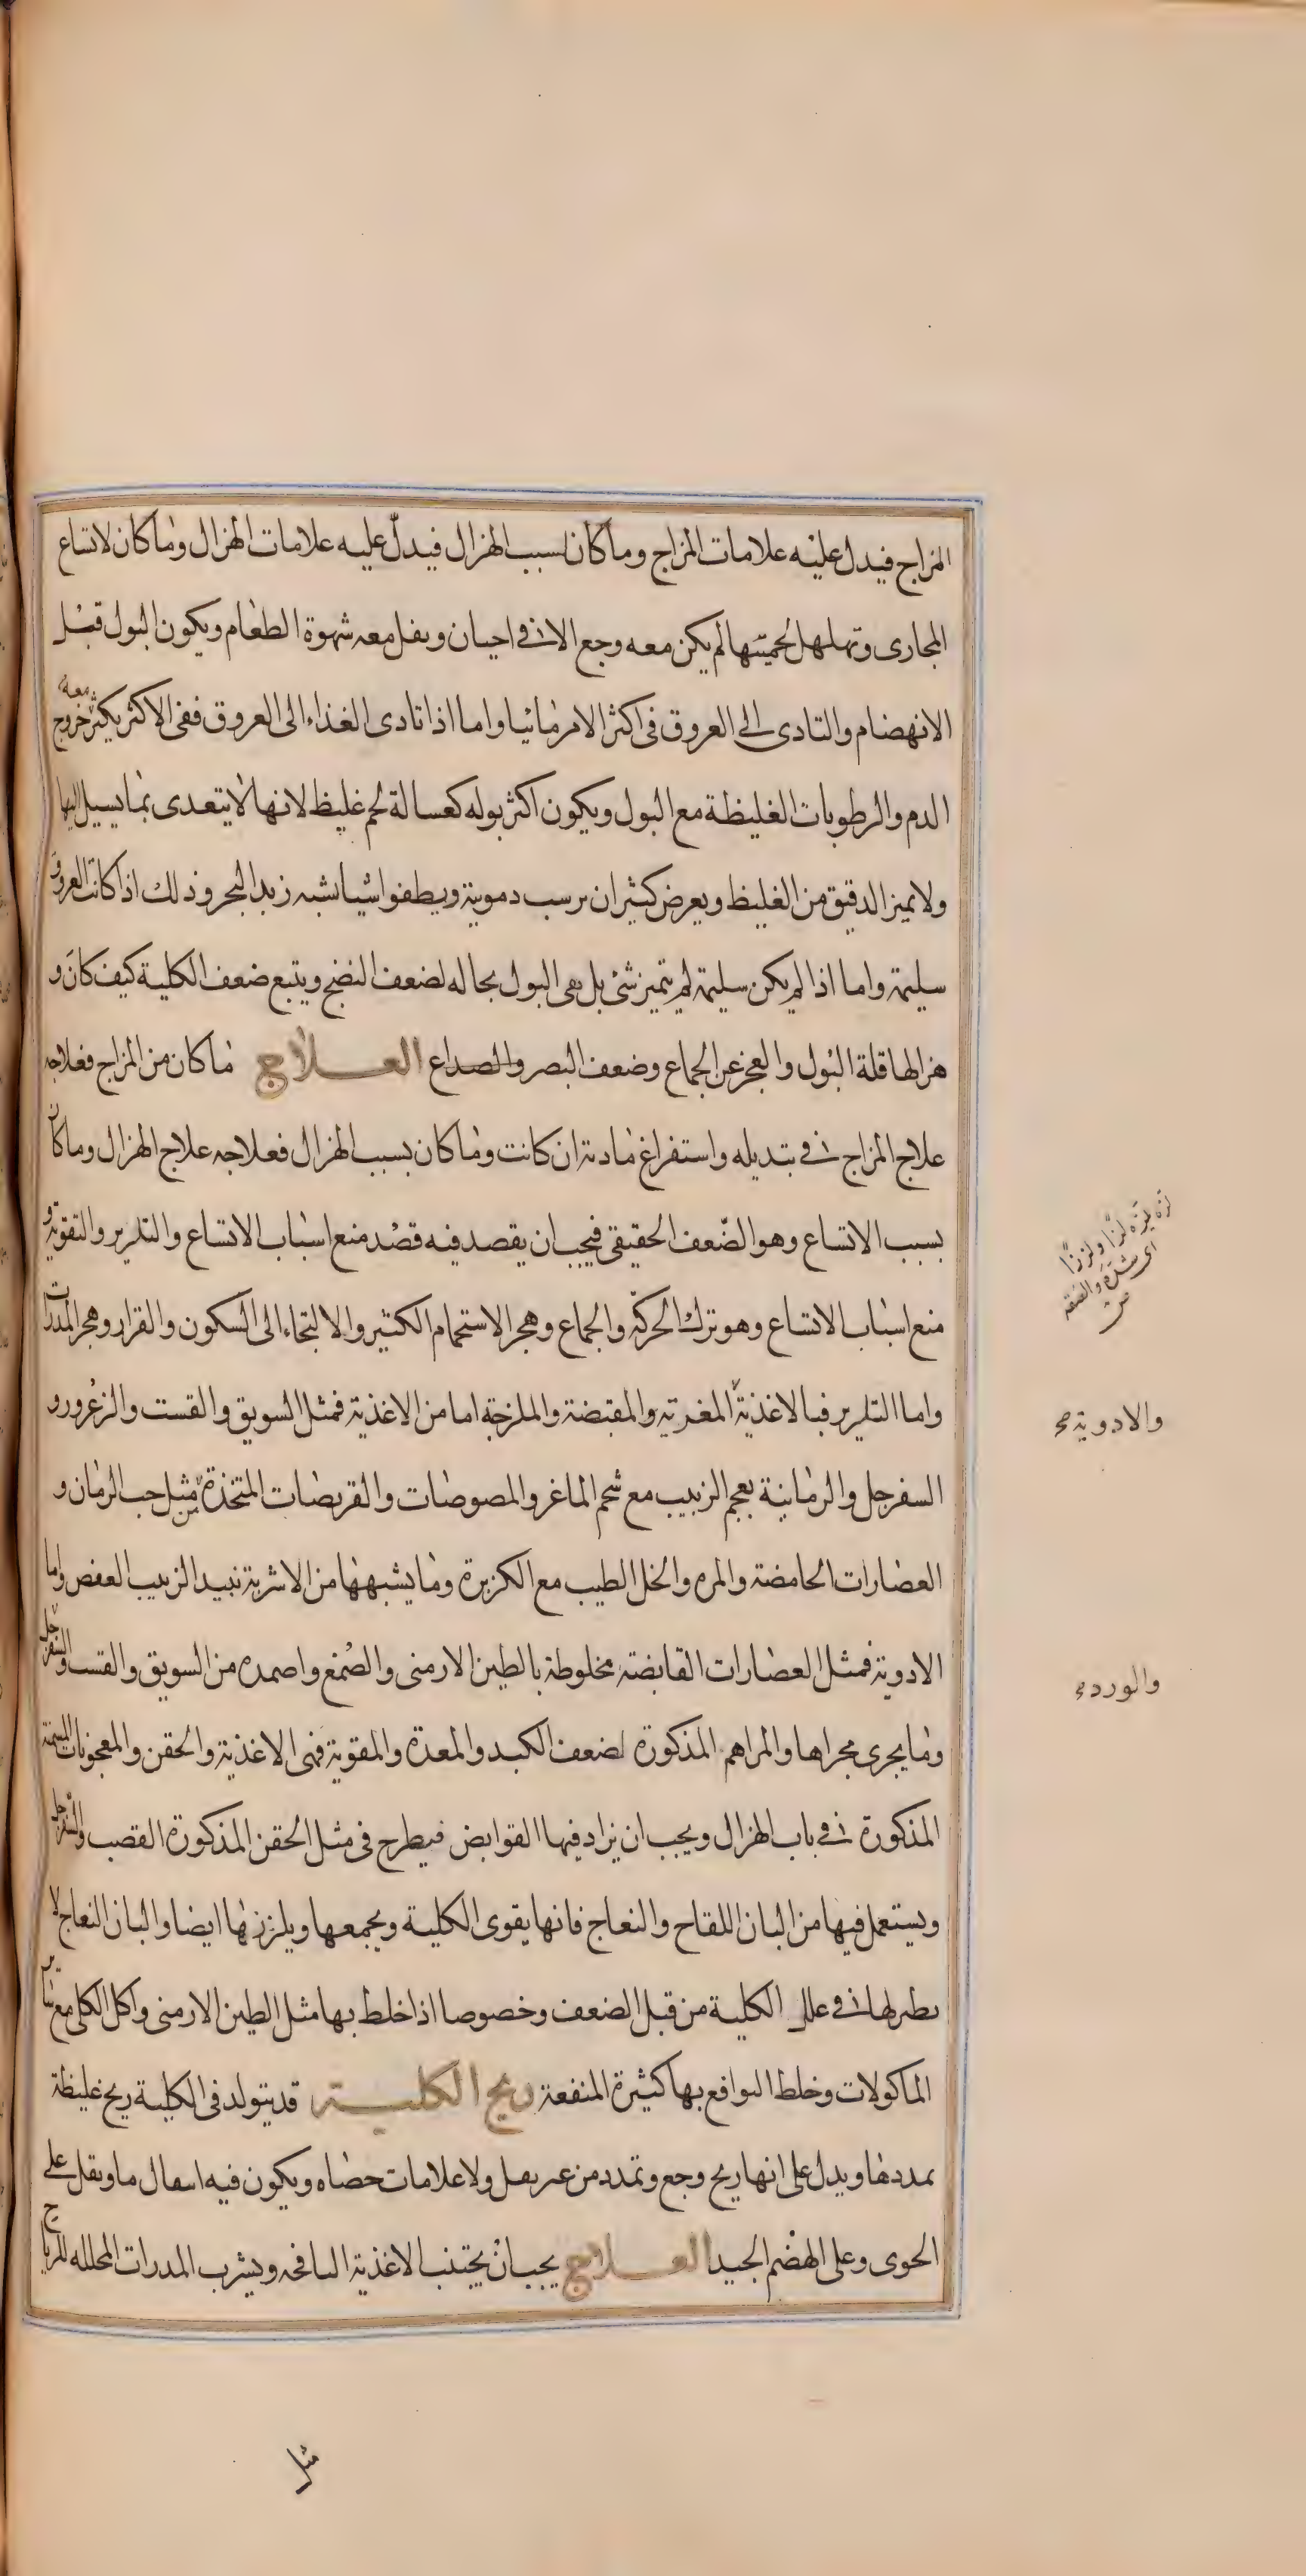 المزاج فيدل عليه علامات المزاج وما كان بسبب الهزال فيدل عليه علامات الهزال وما كان لاتساع
المجارى وتهلهل لحميتها لم يكن معه وجع الا فى احيان ويقل معه شهوة الطعام ويكون البول قبل
الانهضام والتادى الى العروق فى اكثر الامر مائيا واما اذا تادى الغذاء الى العروق ففى الاكثر يكثر معه خروج
الدم والرطوبات الغليظة مع البول ويكون اكثر بوله كغسالة لحم غليظ لانها لا يتعدى بما يسيل اليها
ولا يميز الدقيق من الغليظ ويعرض كثيرا ان يرسب دموية ويطفوا شيا يشبه زبد البحر وذلك اذا كانت العروق
سليمة واما اذا لم يكن سليمة لم يتميز شئ بل بقى البول بحاله لضعف النضج ويتبع ضعف الكلية كيف كان و
هزالها قلة البول والعجز عن الجماع وضعف البصر والصداع العلاج ما كان من المزاج فعلاجه
علاج المزاج فى تبديله واستفراغ مادته ان كانت وما كان بسبب الهزال فعلاجه علاج الهزال وما كان
بسبب الاتساع وهو الضعف الحقيقى فيجب ان يقصد فيه قصد منع اسباب الاتساع والتلريز والتقوية و
منع اسباب الاتساع وهو ترك الحركة والجماع وهجر الاستحمام الكثير والالتجاء الى السكون والقرار وهجر المدرات
واما التلريز فبالاغذية المغرية والمقبضة والملزجة اما من الاغذية فمثل السويق والقست والزعرور و
السفرجل والرمانية بعجم الزبيب مع شحم الماغر والمصوصات والقريصات المتخذة من مثل حب الرمان و
العصارات الحامضة والمره والخل الطيب مع الكزبرة وما يشبهها من الاشربة نبيذ الزبيب العفص واما
الادوية فمثل العصارات القابضة مخلوطة بالطين الارمنى والصمغ واضمده من السويق والقسب والسفرجل
وما يجرى مجراها والمراهم المذكورة لضعف الكبد والمعدة والمقوية فمى الاغذية والحقن والمعجونات المسمنة
المذكورة فى باب الهزال ويجب ان يزاد فيها القوابض فيطرح فى مثل الحقن المذكورة القصب والسفرجل
ويستعمل فيها من البان اللقاح والنعاج فانها يقوى الكلية ويجمعها ويلززها ايضا والبان النعاج لا
نظير لها فى علل الكلية من قبل الضعف وخصوصا اذا خلط بها مثل الطين الارمنى واكل الكلى مع سائر
الماكولات وخلط النوافع بها كثيرة المنفعة ريح الكلية قد يتولد فى الكلية ريح غليظة
تمددها ويدل على انها ريح وجع وتمدد من غير ثقل ولا علامات حصاه ويكون فيه انتقال ما ويقل على
الخوى وعلى الهضم الجيد العلاج يجب ان يجتنب الاغذية النافخه ويشرب المدرات المحلله للرياح
لزه يلزه لزا ولززا
اى شده والصقه
ص
والادوية صح
والورد صح
مثل